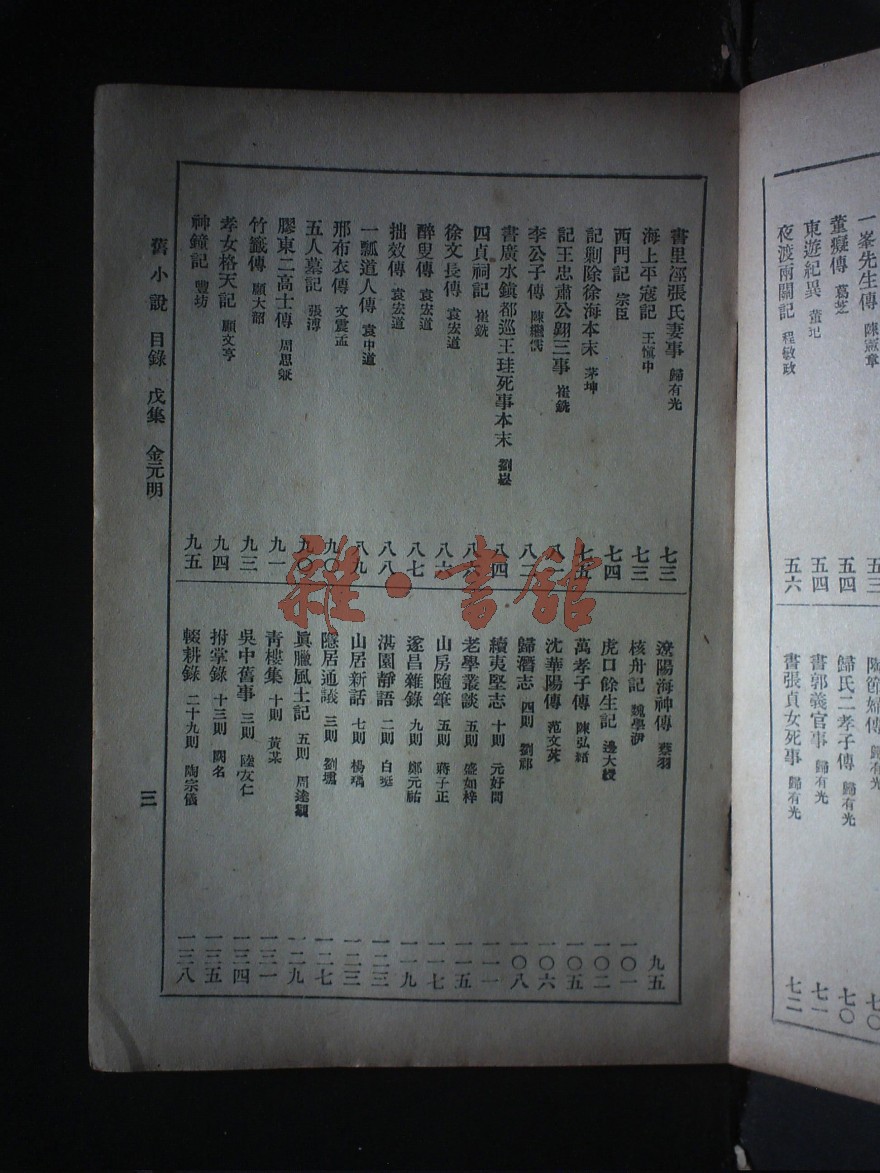 一峯先生傳 陳憲章 五三
董癡傳 葛芝 五四
東遊紀異 董玘 五四
夜渡兩關記 程敏政 五六
陶節婦傳 歸有光 七〇
歸氏二孝子傳 歸有光 七〇
書郭義官事 歸有光 七一
書張貞女死事 歸有光 七二
書里涇張氏妻事 歸有光 七三
海上平寇記 王愼中 七三
西門記 宗臣 七四
記剿除徐海本末 茅坤 七五
記王忠肅公翺三事 崔銑
李公子傳 陳繼儒 八二
書廣水鎭都巡王珪死事本末 劉 八四
四貞祠記 崔銑
徐文長傳 袁宏道 八六
醉叟傳 袁宏道 八七
拙效傳 袁宏道 八八
一瓢道人傳 袁中道 八九
邢布衣傳 文震孟 九〇
五人墓記 張溥 九〇
膠東二高士傳 周思兼 九一
竹籤傳 顧大韶 九三
孝女格天記 顧文亨 九四
神鐘記 豐坊 九五
遼陽海神傳 蔡羽 九五
核舟記 魏學洢 一〇一
虎口餘生記 邊大綬 一〇二
萬孝子傳 陳弘緒 一〇五
沈華陽傳 范文英 一〇六
歸潛志 四則 劉祁 一〇八
續夷堅志 十則 元好問 一一一
老學叢談 五則 盛如梓 一一五
山房隨筆 五則 蔣子正 一一七
遂昌雜錄 九則 鄭元祐 一一九
湛園靜語 二則 白珽 一二三
山居新話 七則 楊瑀 一二三
隱居通議 三則 劉壎 一二七
眞臘風土記 五則 周達觀 一二九
靑樓集 十則 黃某 一三一
吳中舊事 三則 陸友仁 一三四
拊掌錄 十三則 闕名 一三五
輟耕錄 二十九則 陶宗儀 一三八
舊小說 目錄 戊集 金元明
三
雜·書館